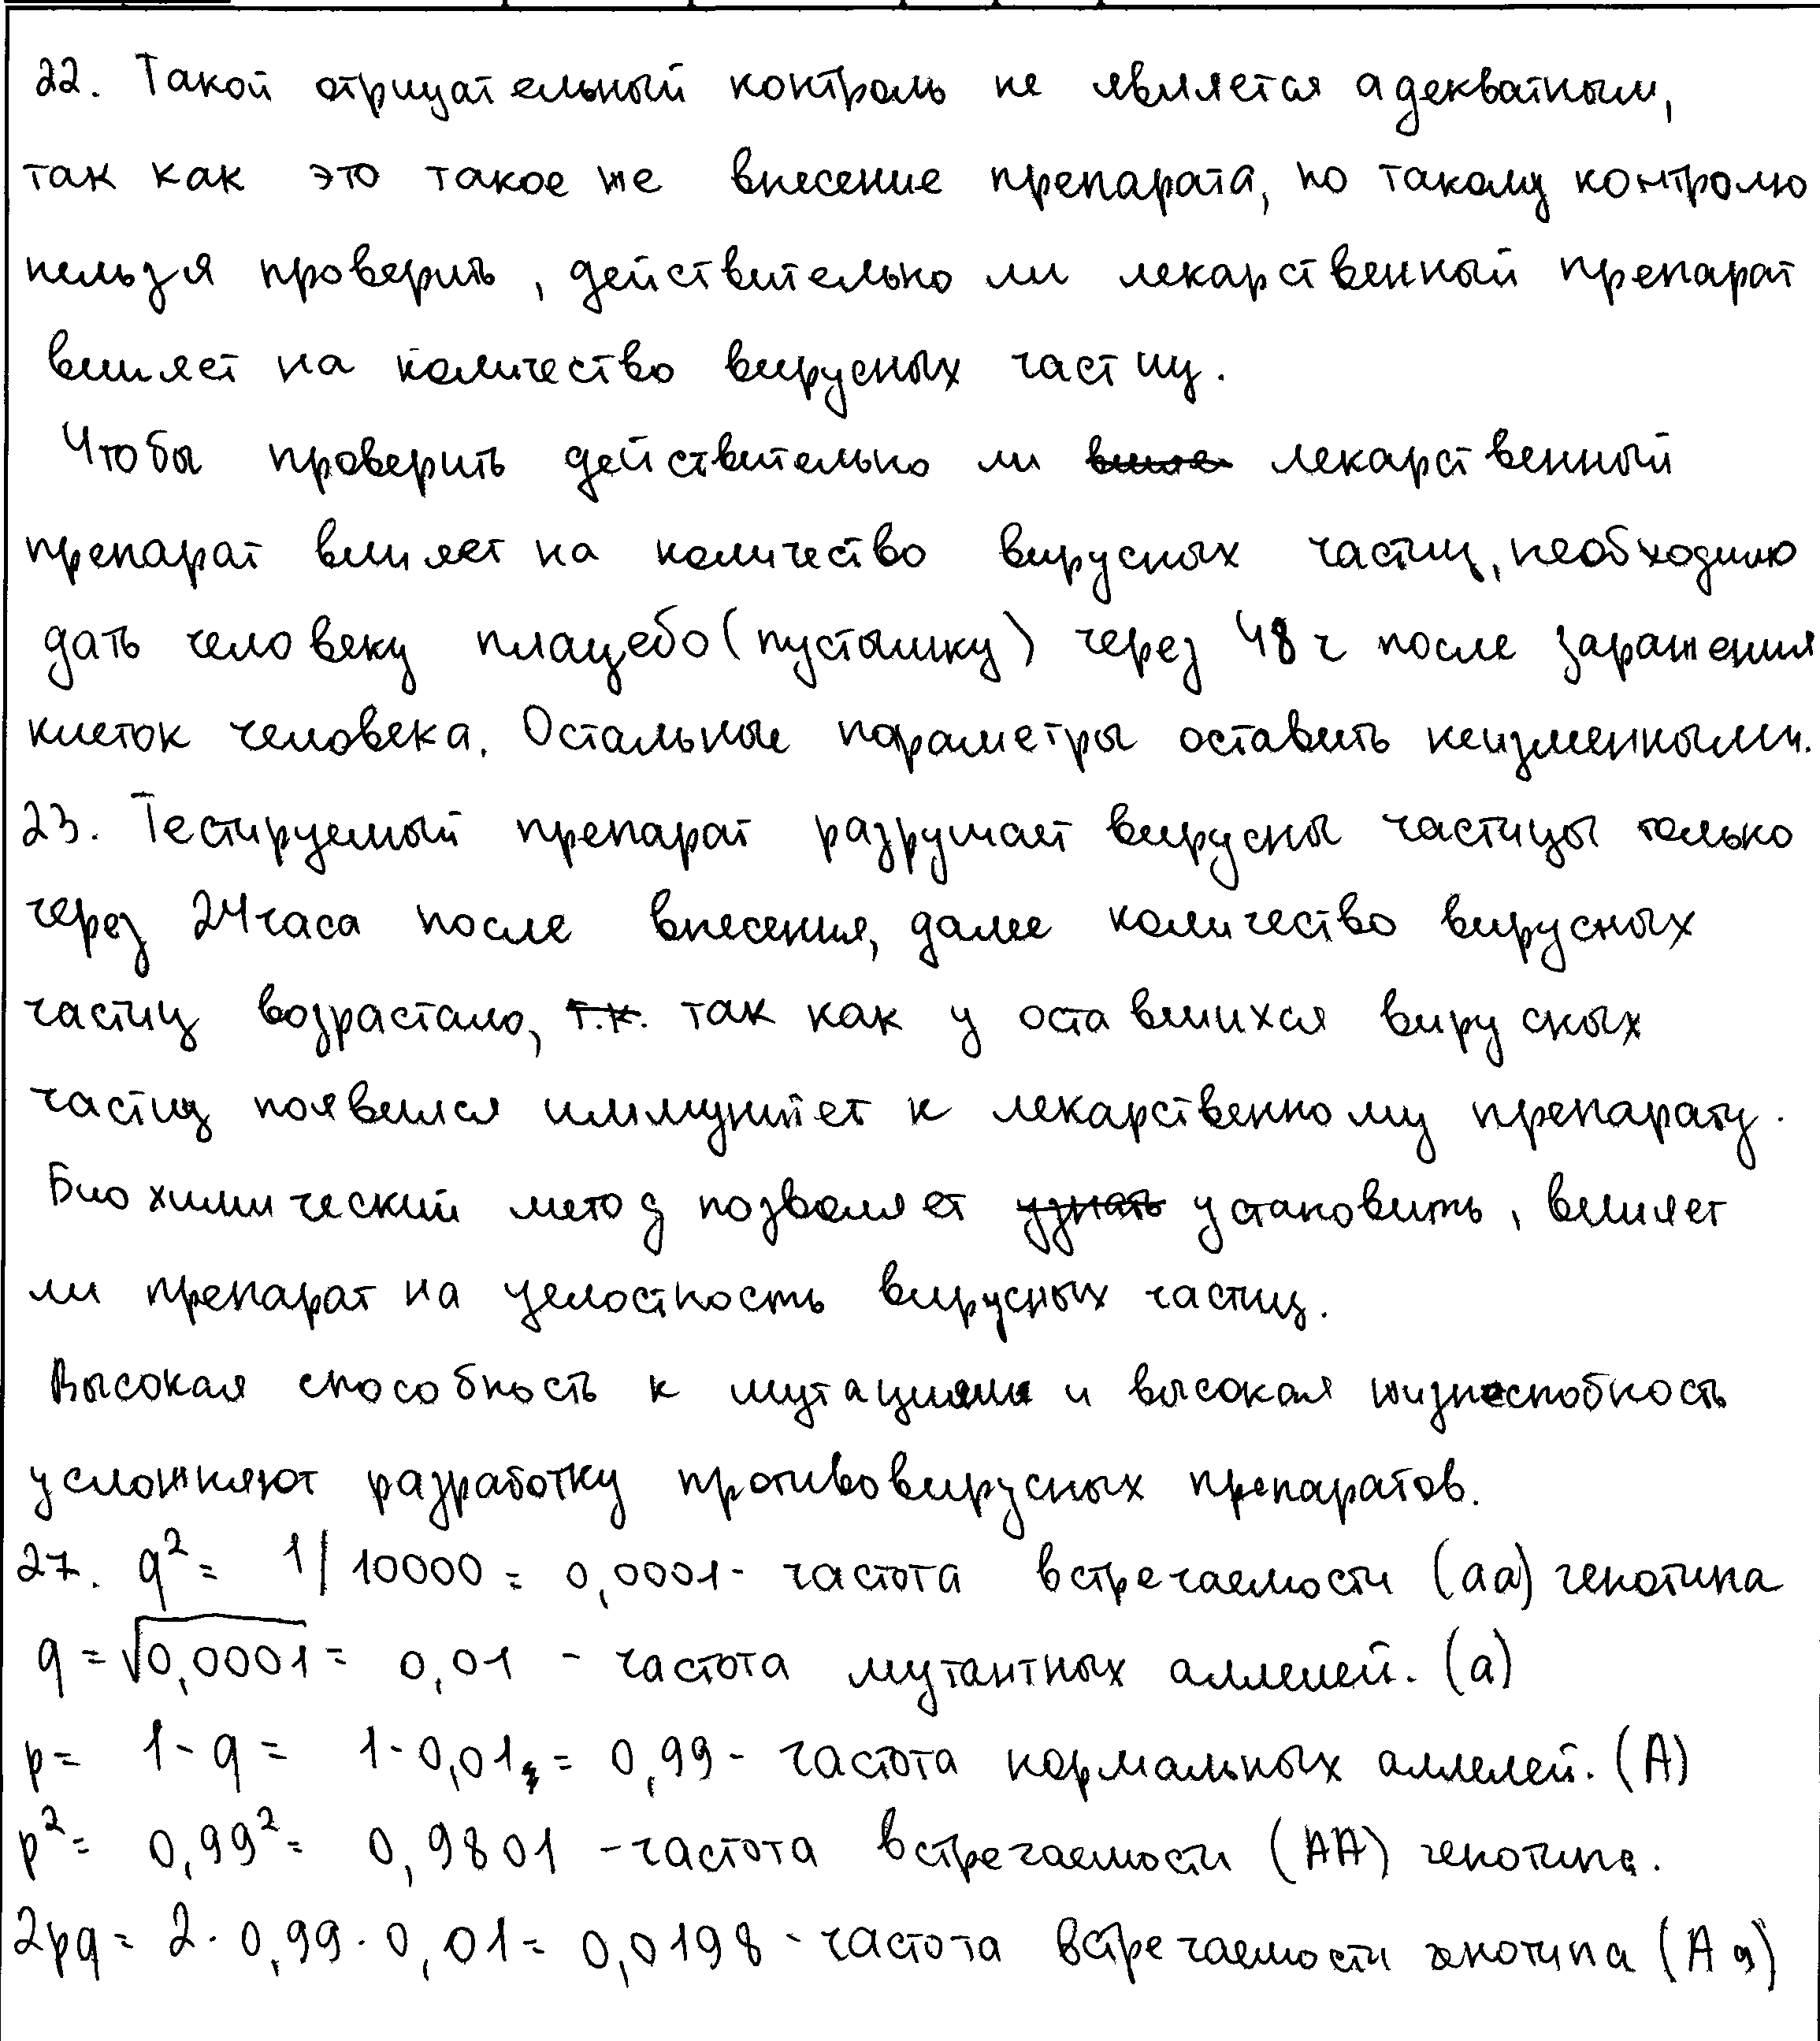 22. Такой отрицательный контроль не является адекватным,
так как это такое же внесение препарата, по такому контролю
нельзя проверить, действительно ли лекарственный препарат
влияет на количество вирусных частиц.
Чтобы проверить действительно ли лекарственный
препарат влияет на количество вирусных частиц, необходимо
дать человеку плацебо (пустышку) через 48 ч после заражения
клеток человека. Остальные параметры оставить неизменными.
23. Тестируемый препарат разрушает вирусны частицы только
через 24 часа после внесения, далее количество вирусных
частиц возрастало, т.к. так как у оставшихся вирусных
частиц появился иммунитет к лекарственному препарату.
Биохимический метод позволяет узнать установить, влияет
ли препарат на целостность вирусных частиц.
Высокая способность к мутациям и высокая жизнеспобность
усложняют разработку противовирусных препаратов.
27. q² = 1/10000 = 0,0001 - частота встречаемости (аа) генотипа
q = √0,0001 = 0,01 - частота мутантных аллелей. (а)
p = 1 - q = 1 - 0,01 = 0,99 - частота нормальных аллелей. (А)
p² = 0,99² = 0,9801 - частота встречаемости (АА) генотипа.
2pq = 2 · 0,99 · 0,01 = 0,0198 - частота встречаемости генотипа (Аа)